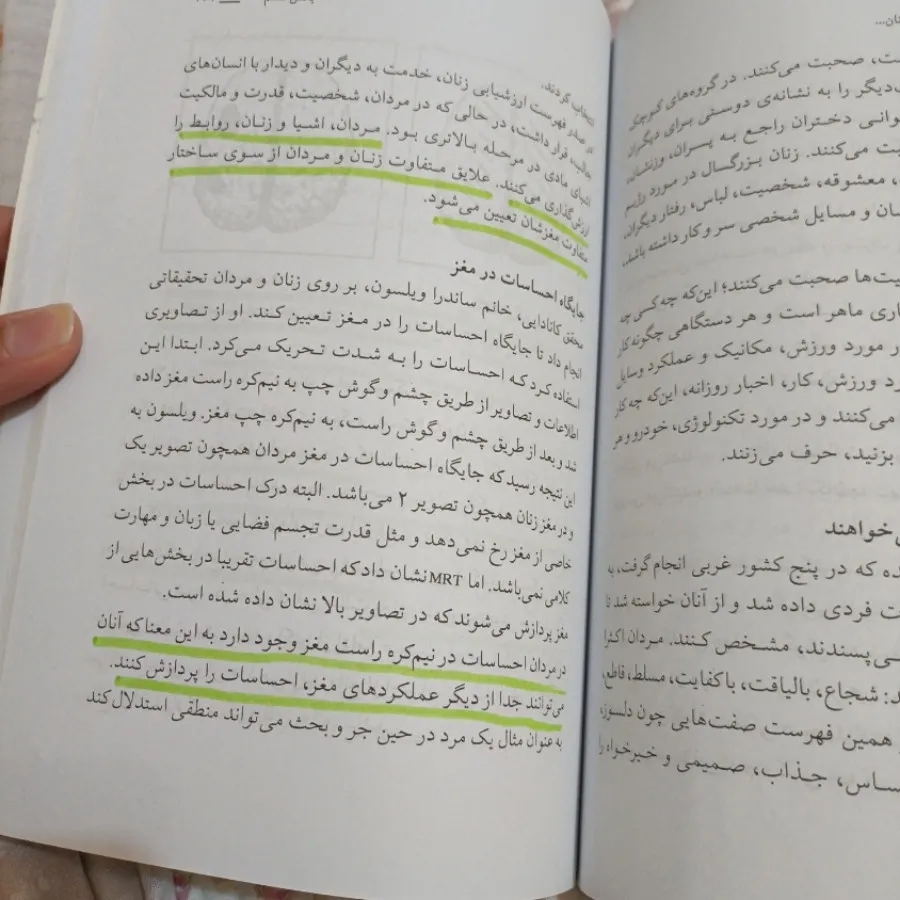 انتخاب کردند.
در صدر فهرست ارزشیابی زنان، خدمت به دیگران و دیدار با انسان‌های
جالب، قرار داشت، در حالی که در مردان، شخصیت، قدرت و مالکیت
اشیای مادی در مرحله بالاتری بود. مردان، اشیا و زنان، روابط را
ارزش‌گذاری می‌کنند. علایق متفاوت زنان و مردان از سوی ساختار
متفاوت مغزشان تعیین می‌شود.
جایگاه احساسات در مغز
محقق کانادایی، خانم ساندرا ویلسون، بر روی زنان و مردان تحقیقاتی
انجام داد تا جایگاه احساسات را در مغز تعیین کند. او از تصاویری
استفاده کرد که احساسات را به شدت تحریک می‌کرد. ابتدا این
اطلاعات و تصاویر از طریق چشم و گوش چپ به نیم‌کره راست مغز داده
شد و بعد از طریق چشم و گوش راست، به نیم‌کره چپ مغز. ویلسون به
این نتیجه رسید که جایگاه احساسات در مغز مردان همچون تصویر یک
و در مغز زنان همچون تصویر ۲ می‌باشد. البته درک احساسات در بخش
خاصی از مغز رخ نمی‌دهد و مثل قدرت تجسم فضایی یا زبان و مهارت
کلامی نمی‌باشد. اما MRT نشان داد که احساسات تقریبا در بخش‌هایی از
مغز پردازش می‌شوند که در تصاویر بالا نشان داده شده است.
در مردان احساسات در نیم‌کره راست مغز وجود دارد به این معنا که آنان
می‌توانند جدا از دیگر عملکردهای مغز، احساسات را پردازش کنند.
به عنوان مثال یک مرد در حین جر و بحث می‌تواند منطقی استدلال کند
صحبت می‌کنند. در گروه‌های کوچک
دیگر را به نشانه‌ی دوستی برای دیگران
دختران راجع به پسران، ورزشیان،
می‌کنند. زنان بزرگسال در مورد رژیم
معشوقه، شخصیت، لباس، رفتار دیگران،
و مسایل شخصی سر و کار داشته باشد،
صحبت می‌کنند؛ این‌که چه کسی چه
ماهر است و هر دستگاهی چگونه کار
مورد ورزش، مکانیک و عملکرد وسایل
ورزش، کار، اخبار روزانه، این‌که چه کار
می‌کنند و در مورد تکنولوژی، خودرو و هر
بزنید، حرف می‌زنند.
خواهند
که در پنج کشور غربی انجام گرفت، به
فردی داده شد و از آنان خواسته شد تا
می‌پسندند، مشخص کنند. مردان اکثرا
شجاع، بالیاقت، باکفایت، مسلط، قاطع،
همین فهرست صفت‌هایی چون دلسوز،
جذاب، صمیمی و خیرخواه را